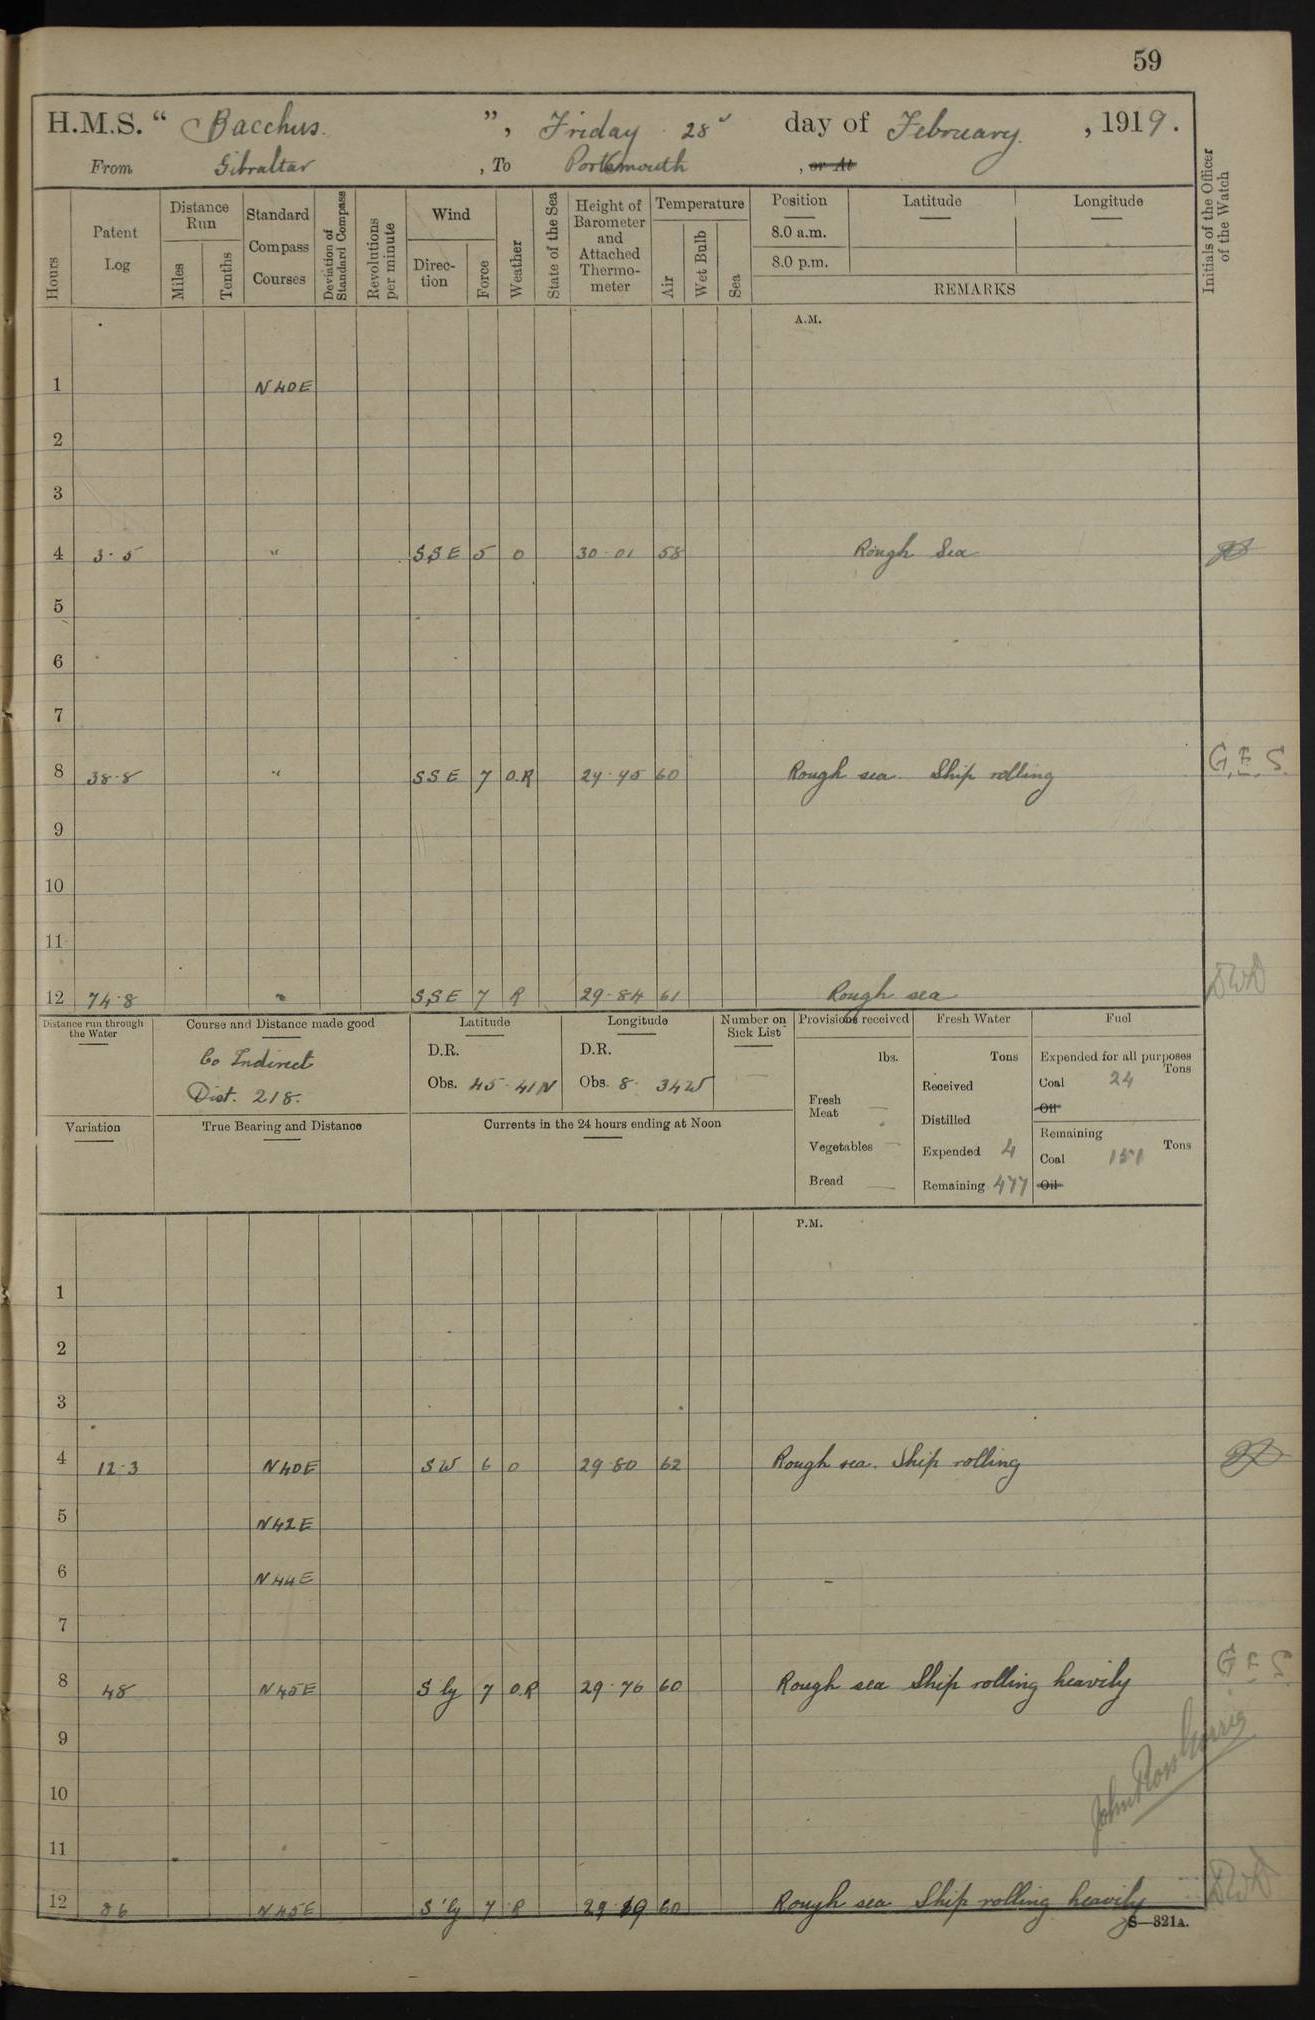 59
H.M.S. “ Bacchus. ”, Friday 28 day of February, 1919.
From Gibraltar, To Portsmouth, or At
Hours
Patent Log
Distance Run
Miles
Tenths
Standard Compass Courses
Deviation of Standard Compass
Revolutions per minute
Wind
Direction
Force
Weather
State of the Sea
Height of Barometer and Attached Thermometer
Temperature
Air
Wet Bulb
Sea
Position
8.0 a.m.
8.0 p.m.
Latitude
Longitude
REMARKS
Initials of the Officer of the Watch
A.M.
1 N40E
2
3
4 3·5 " SSE 5 O 30·01 58 Rough Sea
5
6
7
8 38·8 " SSE 7 O.R 60 Rough sea Ship rolling G.E.S.
9
10
11
12 74·8 " SSE 7 R 29·84 61 Rough sea DWD
Distance run through the Water
Course and Distance made good
Co Indirect
Dist. 218.
Latitude
D.R.
Obs. 45·41N
Longitude
D.R.
Obs. 8· 34W
Number on Sick List
—
Provisions received
lbs.
Fresh Meat —
Vegetables —
Bread —
Fresh Water
Tons
Received
Distilled
Expended 4
Remaining 477
Fuel
Expended for all purposes
Tons
Coal 24
Oil
Remaining
Tons
Coal 151
Oil
Variation
True Bearing and Distance
Currents in the 24 hours ending at Noon
P.M.
1
2
3
4 12·3 N40E SW 6 O 29·80 62 Rough sea. Ship rolling
5 N42E
6 N44E
7
8 48 N45E S'ly 7 O.R 29·76 60 Rough sea Ship rolling heavily G.E.S.
9
10
11
12 86 N45E S'ly 7 R 60 Rough sea Ship rolling heavily DWD
S—321A.